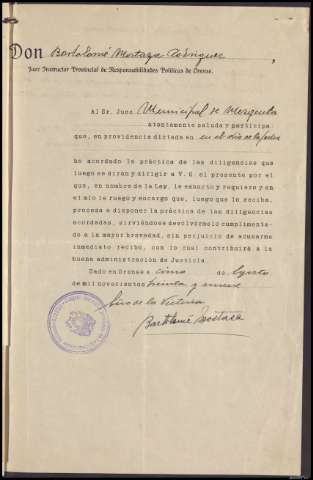 Don Bartolomé Mostaza Rodríguez,
Juez Instructor Provincial de Responsabilidades Políticas de Orense.
Al Sr. Juez Municipal de
atentamente saluda y participa:
que, en providencia dictada en en el día de la fecha
ha acordado la práctica de las diligencias que
luego se dirán y dirigir a V. S. el presente por el
que, en nombre de la Ley, le exhorto y requiero y en
el mío le ruego y encargo que, luego que lo reciba,
proceda a disponer la práctica de las diligencias
acordadas, sirviéndose devolvérmelo cumplimenta-
do a la mayor brevedad, sin perjuicio de acusarme
inmediato recibo, con lo cual contribuirá a la
buena administración de Justicia.
Dado en Orense a cinco de Agosto
de mil novecientos treinta y nueve
Año de la Victoria
Bartolomé Mostaza